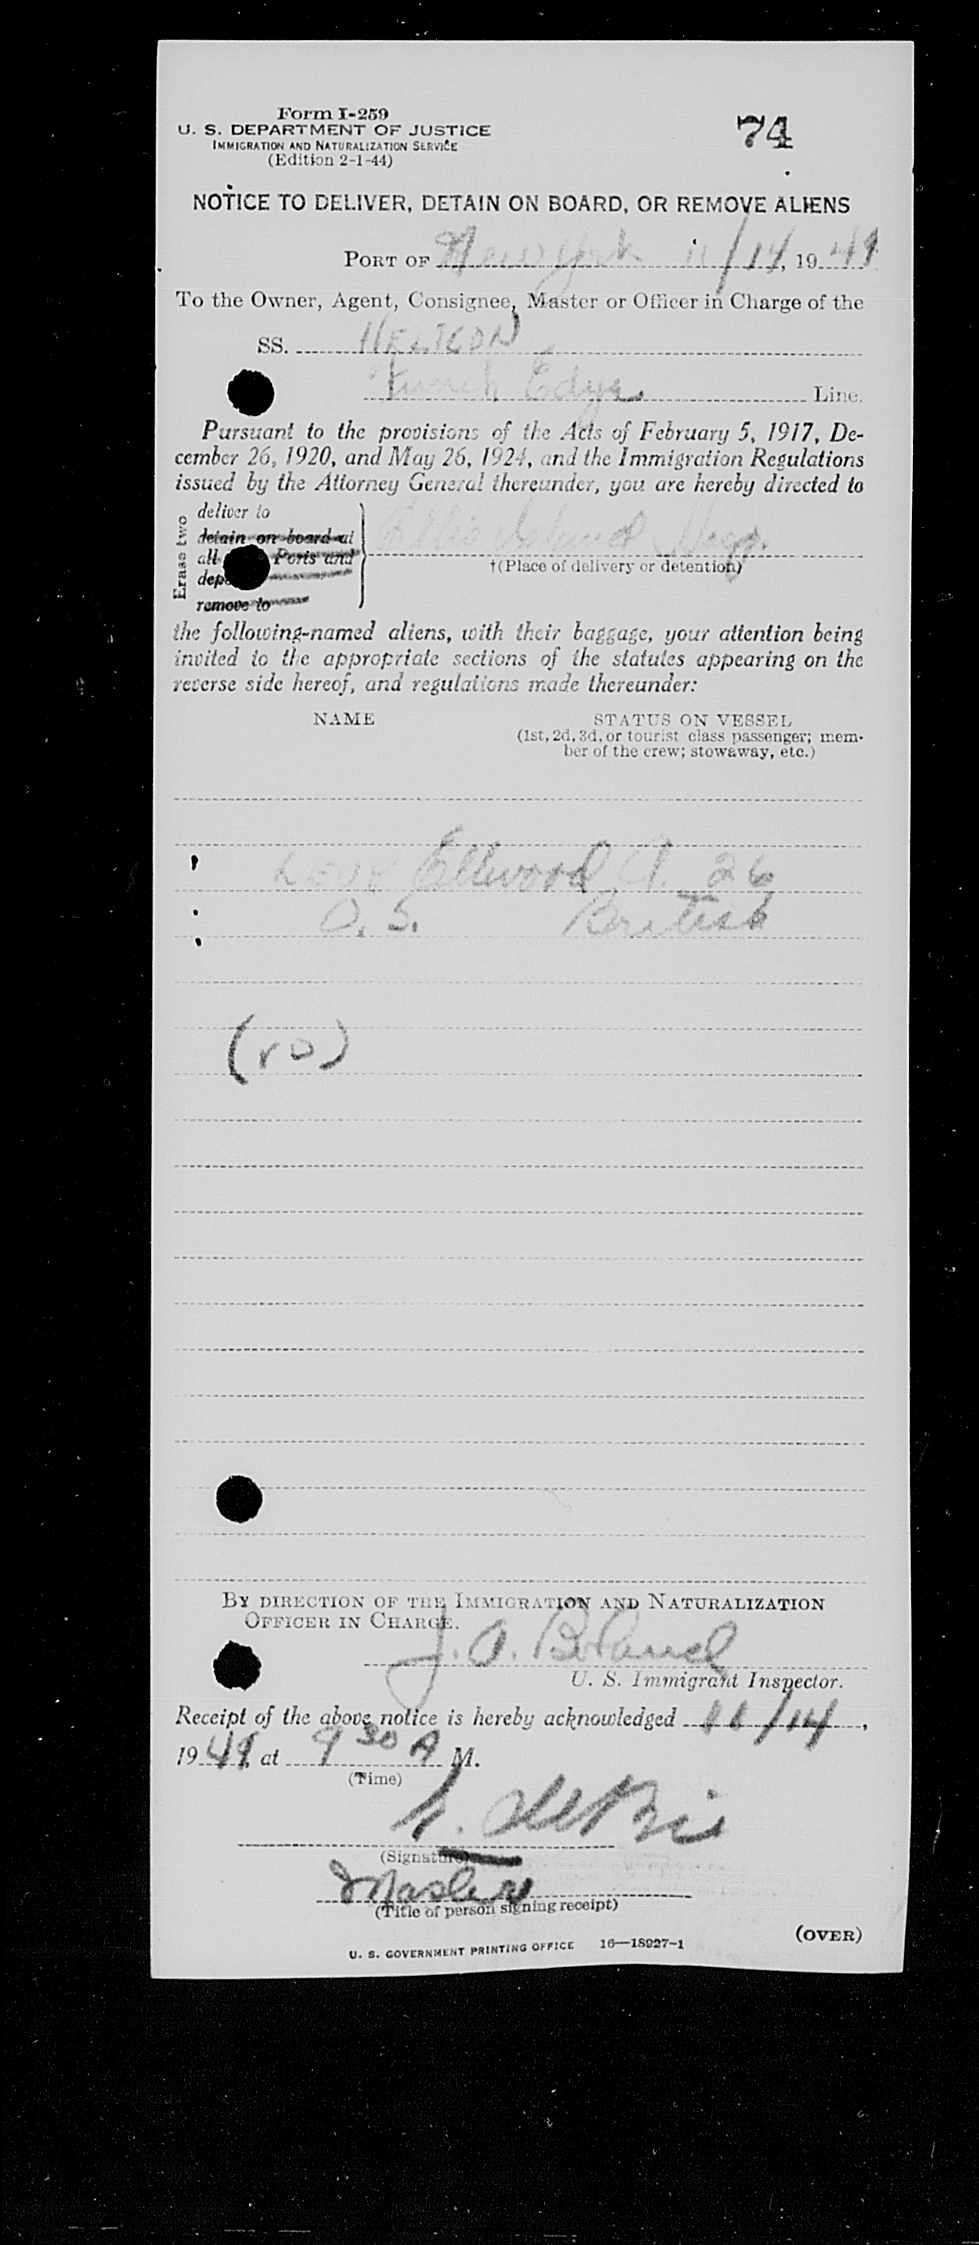 Form I-259
74
U. S. DEPARTMENT OF JUSTICE
IMMIGRATION AND NATURALIZATION SERVICE
(Edition 2-1-44)
NOTICE TO DELIVER, DETAIN ON BOARD, OR REMOVE ALIENS
PORT OF New York 11/14, 1949
To the Owner, Agent, Consignee, Master or Officer in Charge of the
SS. HELICON
Funch Edye Line.
Pursuant to the provisions of the Acts of February 5, 1917, De-
cember 26, 1920, and May 26, 1924, and the Immigration Regulations
issued by the Attorney General thereunder, you are hereby directed to
Erase two
deliver to
detain on board at
all Ports and
remove to
Ellis Island
†(Place of delivery or detention)
the following-named aliens, with their baggage, your attention being
invited to the appropriate sections of the statutes appearing on the
reverse side hereof, and regulations made thereunder:
NAME STATUS ON VESSEL
(1st, 2d, 3d, or tourist class passenger; mem-
ber of the crew; stowaway, etc.)
Love Ellwood A. 26
O. S. British
(ro)
BY DIRECTION OF THE IMMIGRATION AND NATURALIZATION
OFFICER IN CHARGE.
J. A. Boland
U. S. Immigrant Inspector.
Receipt of the above notice is hereby acknowledged 11/14,
1949, at 9 30 A M.
(Time)
(Signature)
Master
(Title of person signing receipt)
(OVER)
U. S. GOVERNMENT PRINTING OFFICE 16—18927-1